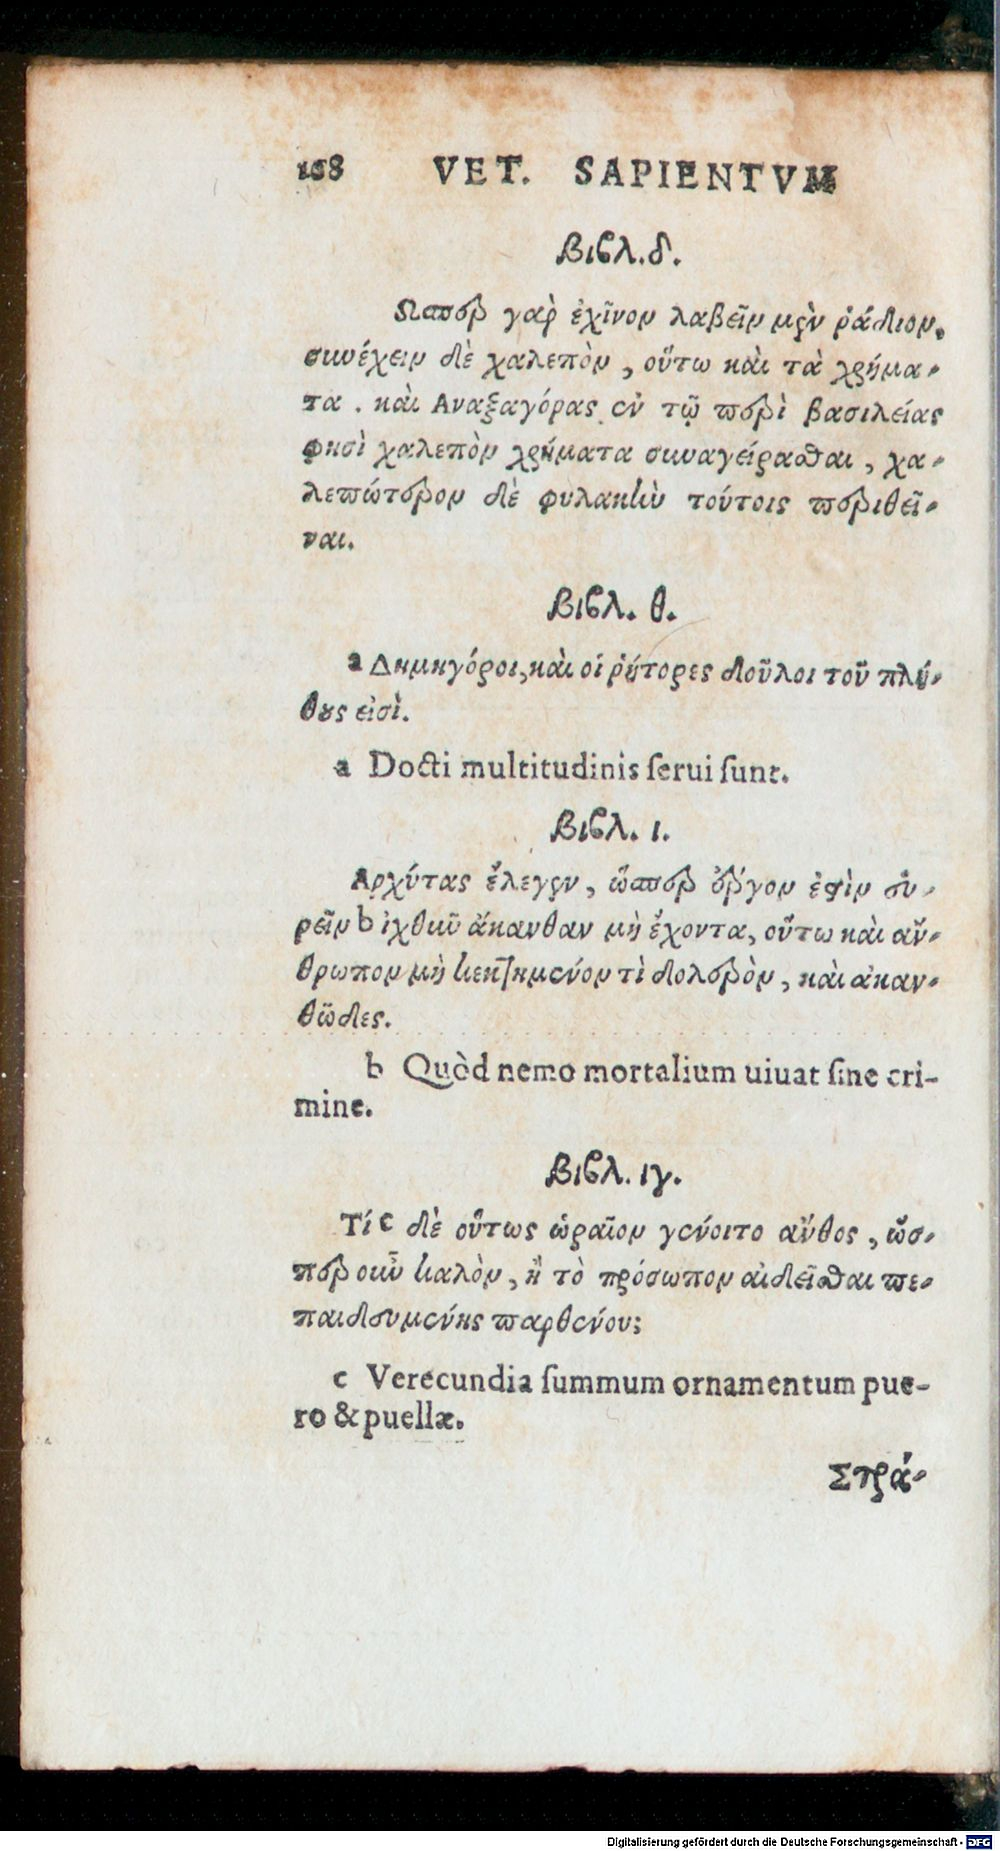 168 VET. SAPIENTVM
Βιβλ. δ.
Ωσπερ γὰρ ἐχῖνον λαβεῖν μὲν ῥάδιον,
συνέχειν δὲ χαλεπὸν, οὕτω καὶ τὰ χρήμα-
τα. καὶ Αναξαγόρας ἐν τῷ περὶ βασιλείας
φησὶ χαλεπὸν χρήματα συναγείρασθαι, χα-
λεπώτερον δὲ φυλακὴν τούτοις περιθεῖ-
ναι.
Βιβλ. θ.
a Δημηγόροι, καὶ οἱ ῥήτορες δοῦλοι τοῦ πλή-
θους εἰσὶ.
a Docti multitudinis serui sunt.
Βιβλ. ι.
Αρχύτας ἔλεγεν, ὥσπερ ἔργον ἐστὶν εὑ-
ρεῖν b ἰχθὺν ἄκανθαν μὴ ἔχοντα, οὕτω καὶ ἄν-
θρωπον μὴ κεκτημένον τὶ δολερὸν, καὶ ἀκαν-
θῶδες.
b Quòd nemo mortalium uiuat sine cri-
mine.
Βιβλ. ιγ.
Τί c δὲ οὕτως ὡραῖον γένοιτο ἄνθος, ὥσ-
περ οὖν καλὸν, ἢ τὸ πρόσωπον αἰδεῖσθαι πε-
παιδευμένης παρθένου;
c Verecundia summum ornamentum pue-
ro & puellæ.
Στρά-
Digitalisierung gefördert durch die Deutsche Forschungsgemeinschaft - DFG